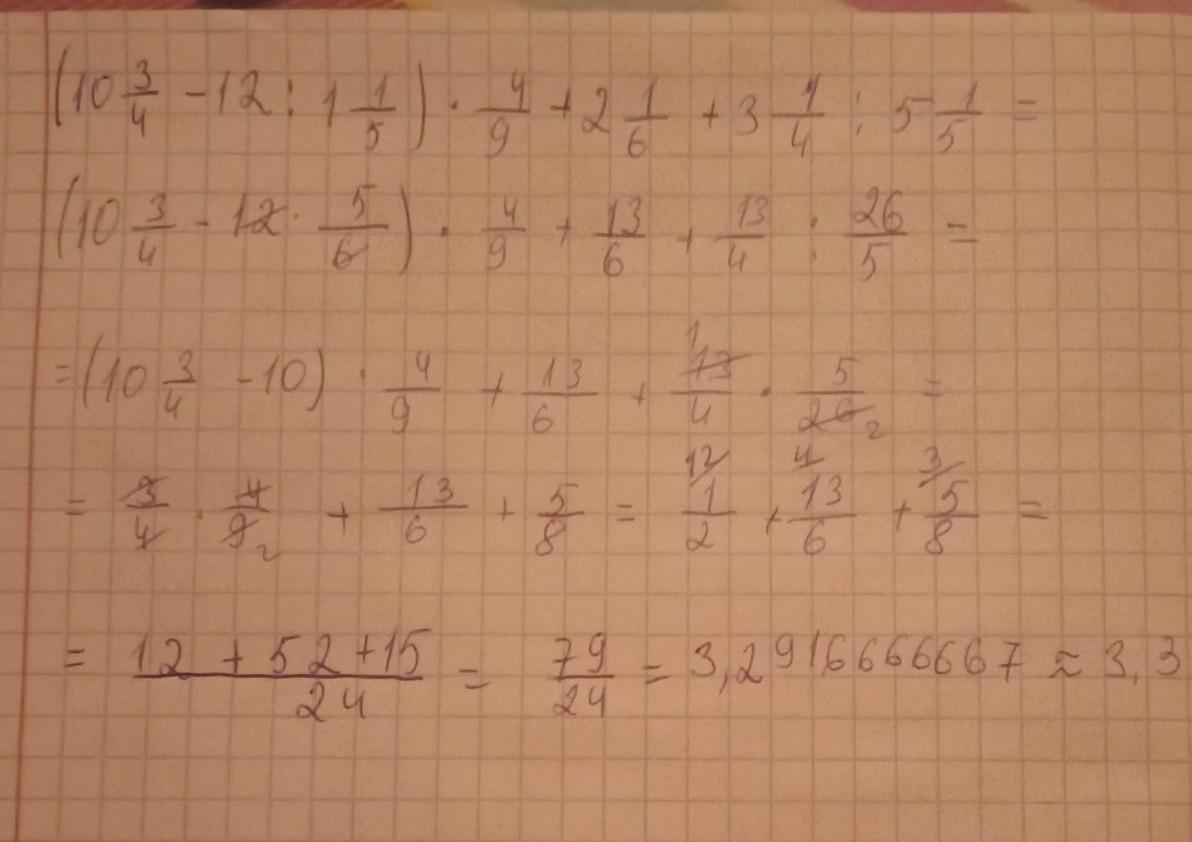 (10 3/4 - 12 : 1 1/5) · 4/9 + 2 1/6 + 3 1/4 : 5 1/5 =
(10 3/4 - 12 · 5/6) · 4/9 + 13/6 + 13/4 : 26/5 =
= (10 3/4 - 10) · 4/9 + 13/6 + 13/4 · 5/26 =
= 3/4 · 4/9 + 13/6 + 5/8 = 1/2 + 13/6 + 5/8 =
= 12 + 52 + 15/24 = 79/24 = 3,2916666667 ≈ 3,3